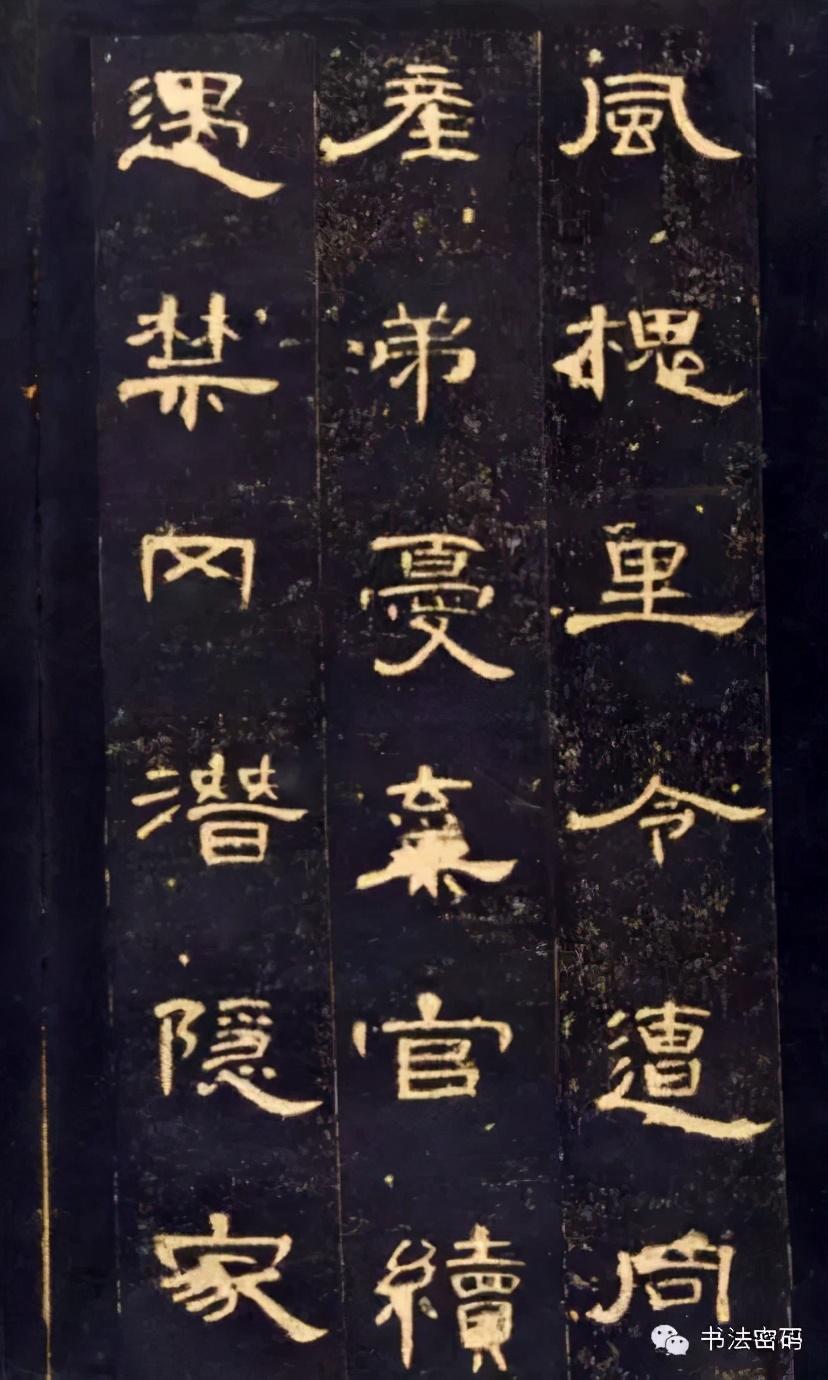 風槐里令遭同
產弟憂棄官續
遇禁网潛隱家
书法密码